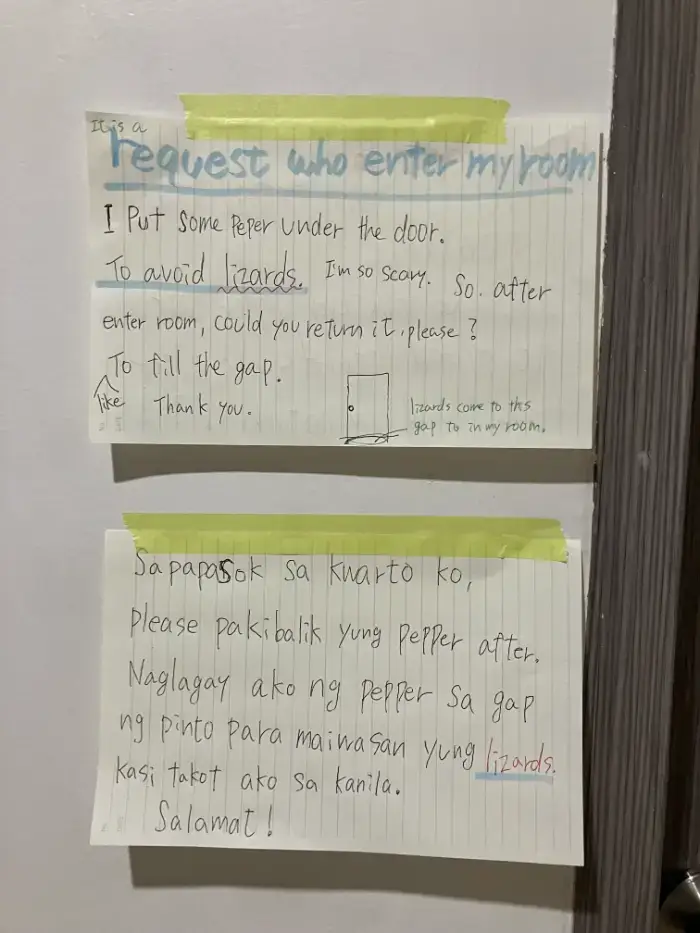 It is a
request who enter my room
I Put some Peper under the door.
To avoid lizards. I'm so scary. So. after
enter room, could you return it, please?
To fill the gap.
like
Thank you.
lizards come to this
gap to in my room.
Sa papasok sa kwarto ko,
please pakibalik yung pepper after.
Naglagay ako ng pepper sa gap
ng pinto para maiwasan yung lizards.
kasi takot ako sa kanila.
Salamat!